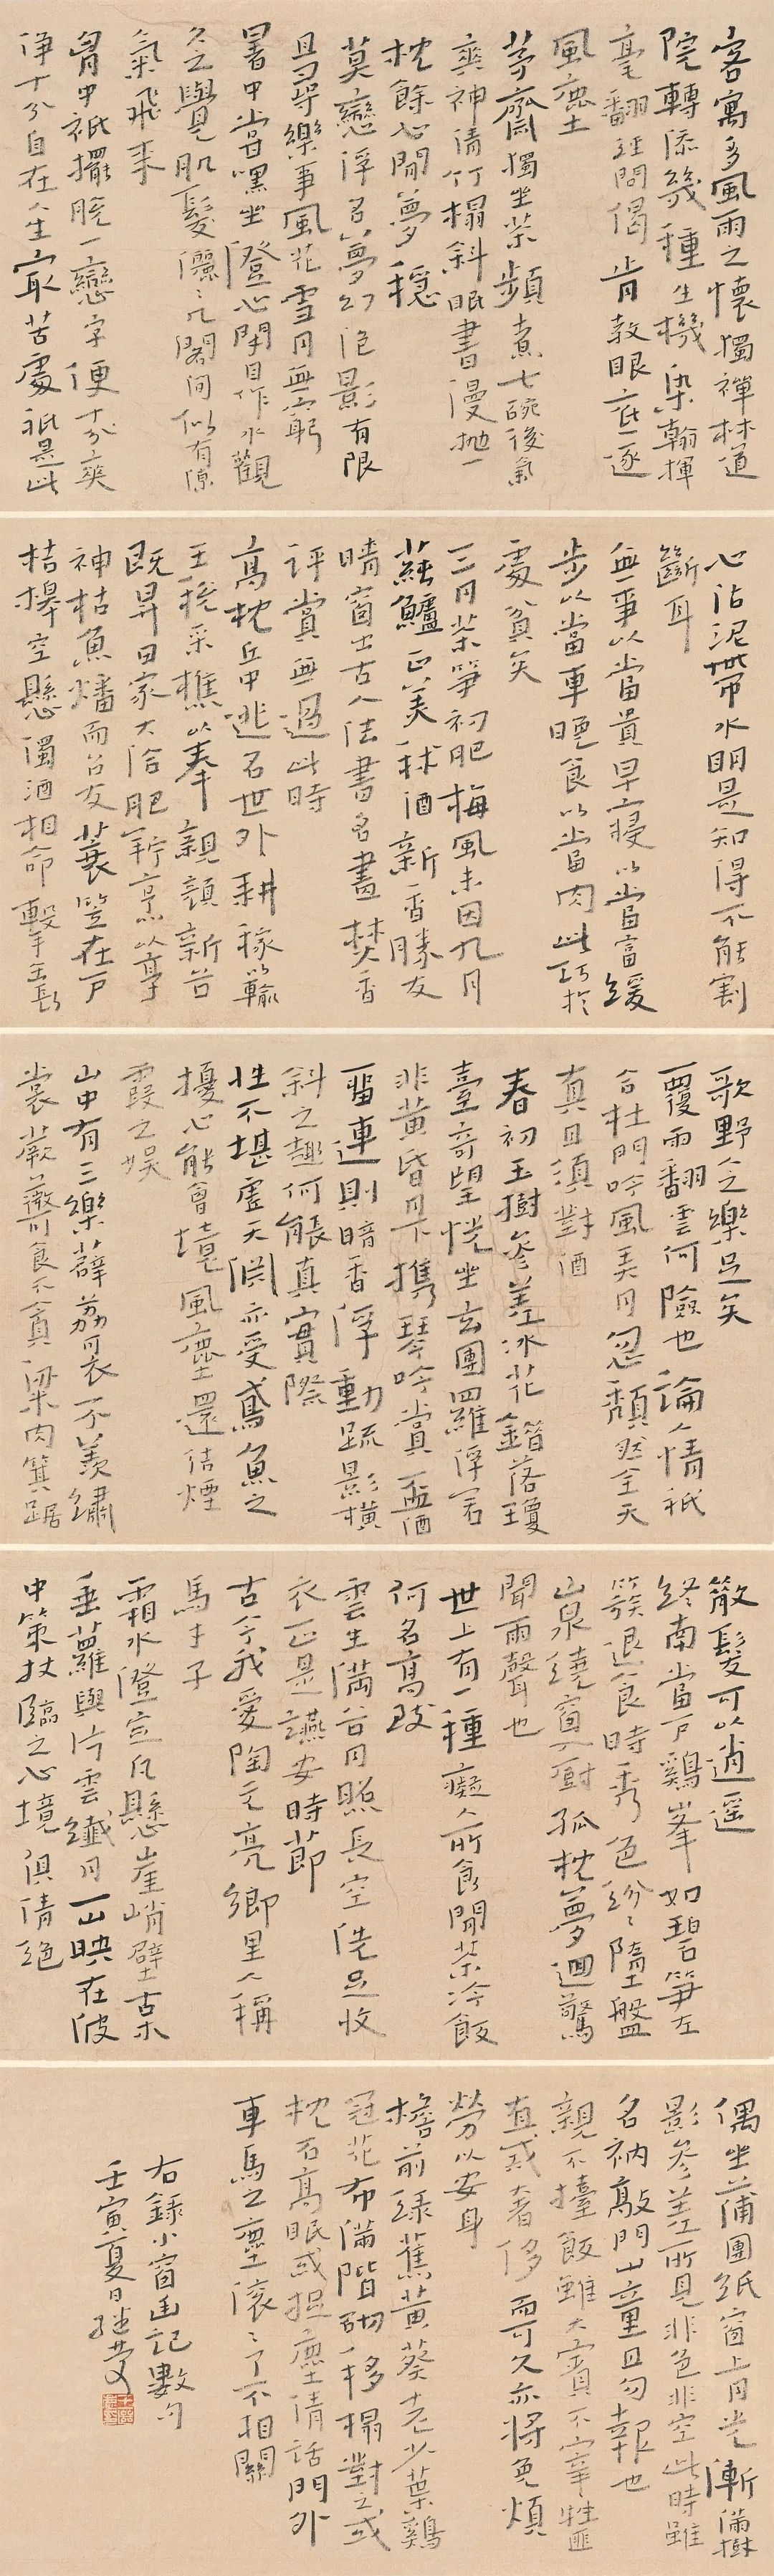 客寓多風雨之懷獨禪林道
院轉添幾種生機染翰揮
毫翻經問偈肯教眼底逐
風塵土
茅齋獨坐茶頻煮七碗後氣
爽神清竹榻斜眠書漫拋一
枕餘心閒夢穩
莫戀浮名夢幻泡影有限
且尋樂事風花雪月無窮
暑中嘗嘿坐澄心閉目作水觀
久之覺肌髮灑灑几閣間似有涼
氣飛來
胸中祇擺脫一戀字便十分爽
淨十分自在人生最苦處祇是此
心沾泥帶水明是知得不能割
斷耳
無事以當貴早寢以當富緩
步以當車晚食以當肉此巧於
處貧矣
三月茶筍初肥梅風未困九月
蓴鱸正美秫酒新香勝友
晴窗出古人法書名畫焚香
評賞無過此時
高枕丘中逃名世外耕稼以輸
王稅采樵以奉親顏新谷
既昇田家大洽肥羜烹以享
神枯魚燔而召友蓑笠在戶
桔槔空懸濁酒相命擊缶長
歌野人之樂足矣
覆雨翻雲何險也論人情祇
合杜門吟風弄月忽頹然全天
真且須對酒
春初玉樹參差冰花錯落瓊
臺奇望恍坐玄圃羅浮若
非黃昏月下攜琴吟賞杯酒
留連則暗香浮動疏影橫
斜之趣何能真實際
性不堪虛天淵亦受鳶魚之
擾心能會境風塵還結煙
霞之娛
山中有三樂薜荔可衣不羨繡
裳蕨薇可食不貪粱肉箕踞
散髮可以逍遙
終南當戶雞峯如碧筍左
簇退食時秀色紛紛墮盤
山泉繞窗入廚孤枕夢迴驚
聞雨聲也
世上有一種癡人所食閒茶冷飯
何名高致
雲生滿谷月照長空洗足收
衣正是讌安時節
古今我愛陶元亮鄉里人稱
馬少子
霜水澄定凡懸崖峭壁古木
垂蘿與片雲纖月一山映在波
中策杖臨之心境俱清絕
偶坐蒲團紙窗上月光漸滿樹
影參差所見非色非空此時雖
名衲敲門山童且勿報也
親不擡飯雖大賓不宰牲匪
直戒奢侈而可久亦將免煩
勞以安身
檐前綠蕉黃葵老少葉雞
冠花布滿階砌移榻對之或
枕石高眠或捉麈清話門外
車馬之塵滾滾了不相關
右錄小窗幽記數句
壬寅夏日